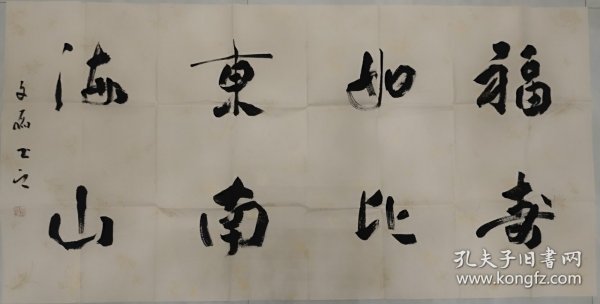 福如東海
寿比南山
孔夫子旧书网
www.kongfz.com